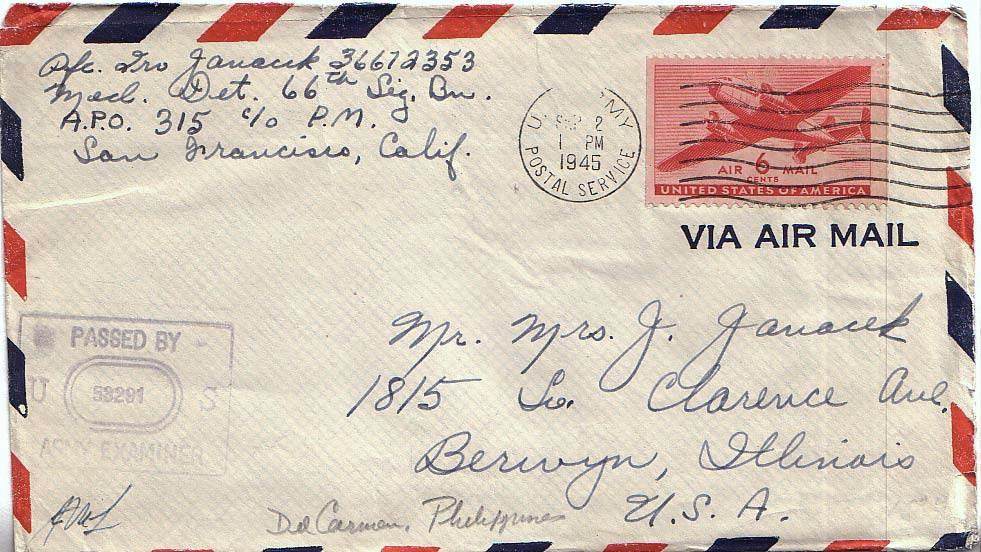 Pfc. Irv Janacek 36672353
Med. Det. 66th Sig. Bn.
A.P.O. 315 c/o P.M.
San Francisco, Calif.
U. ARMY
SEP 2
1 PM
1945
POSTAL SERVICE
AIR 6 MAIL
CENTS
UNITED STATES OF AMERICA
VIA AIR MAIL
PASSED BY
U 53291 S
ARMY EXAMINER
Mr. Mrs. J. Janacek
1815 So. Clarence Ave.
Berwyn, Illinois
U.S.A.
Del Carmen, Philippines